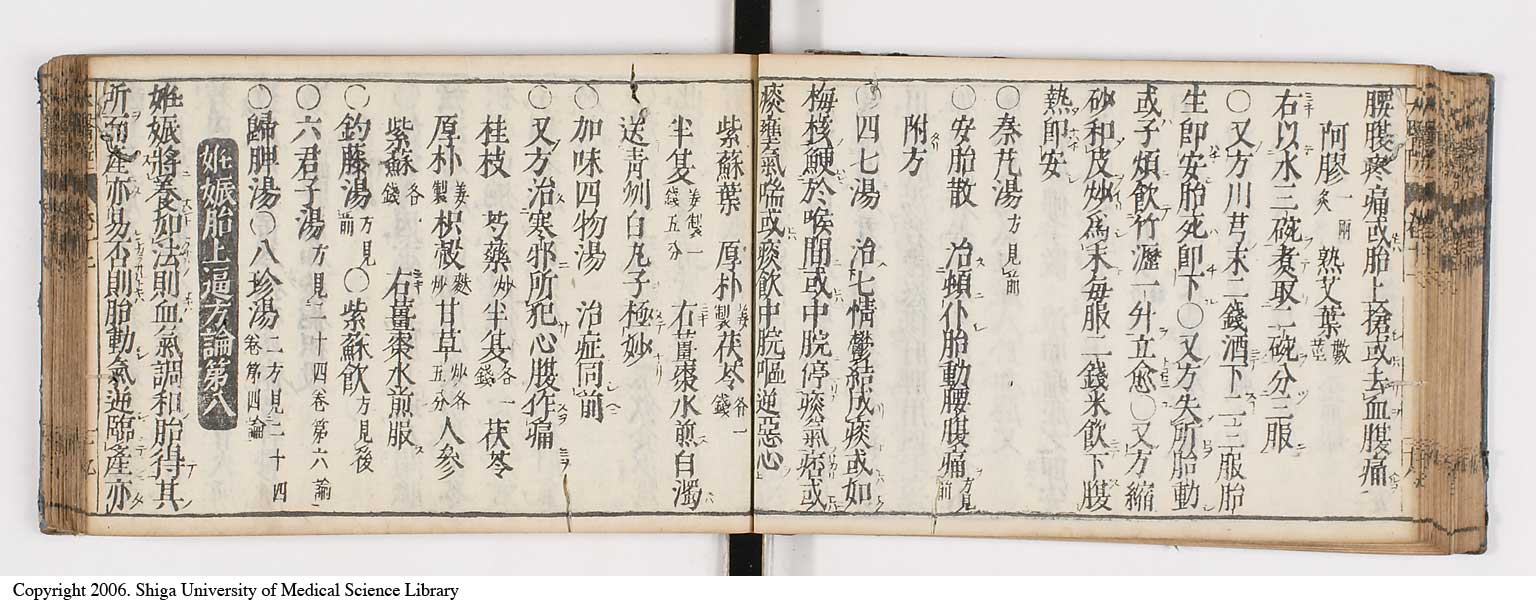 腰腹疼痛或胎上搶或去血腹痛
阿膠炙一兩 熟艾葉數莖
右以水三碗煮取二碗分三服
〇又方川芎末二錢酒下二三服胎
生即安胎死即下〇又方失所胎動
或子煩飲竹瀝一升立愈〇又方縮
砂和皮炒為末每服二錢米飲下腹
熱即安
〇秦艽湯方見前
〇安胎散 治頓仆胎動腰腹痛方見前
附方
〇四七湯 治七情鬱結成痰或如
梅核鯁於喉間或中脘停痰氣痞或
痰壅氣喘或痰飲中脘嘔逆惡心
紫蘇葉 厚朴姜製茯苓各一錢
半夏姜製一錢五分 右薑棗水煎白濁
送青州白丸子極妙
〇加味四物湯 治症同前
〇又方治寒邪所犯心腹作痛
桂枝 芍藥炒半夏各一錢 茯苓
厚朴姜製枳殼麩炒甘草炒各五分人參
紫蘇各錢 右薑棗水煎服
〇釣藤湯方見前 〇紫蘇飲方見後
〇六君子湯方見二十四卷第六論
〇歸脾湯〇八珍湯二方見二十四卷第四論
姙娠胎上逼方論第八
姙娠將養如法則血氣調和胎得其
所而產亦易否則胎動氣逆臨產亦
Copyright 2006. Shiga University of Medical Science Library